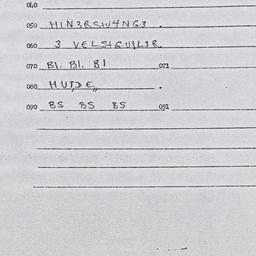 040
050 HIN3RSHW4NG3 .
060 3 VELSHGUYL3R.
070 BI. BI. BI 071
080 HUIDE, .
090 BS BS BS 091